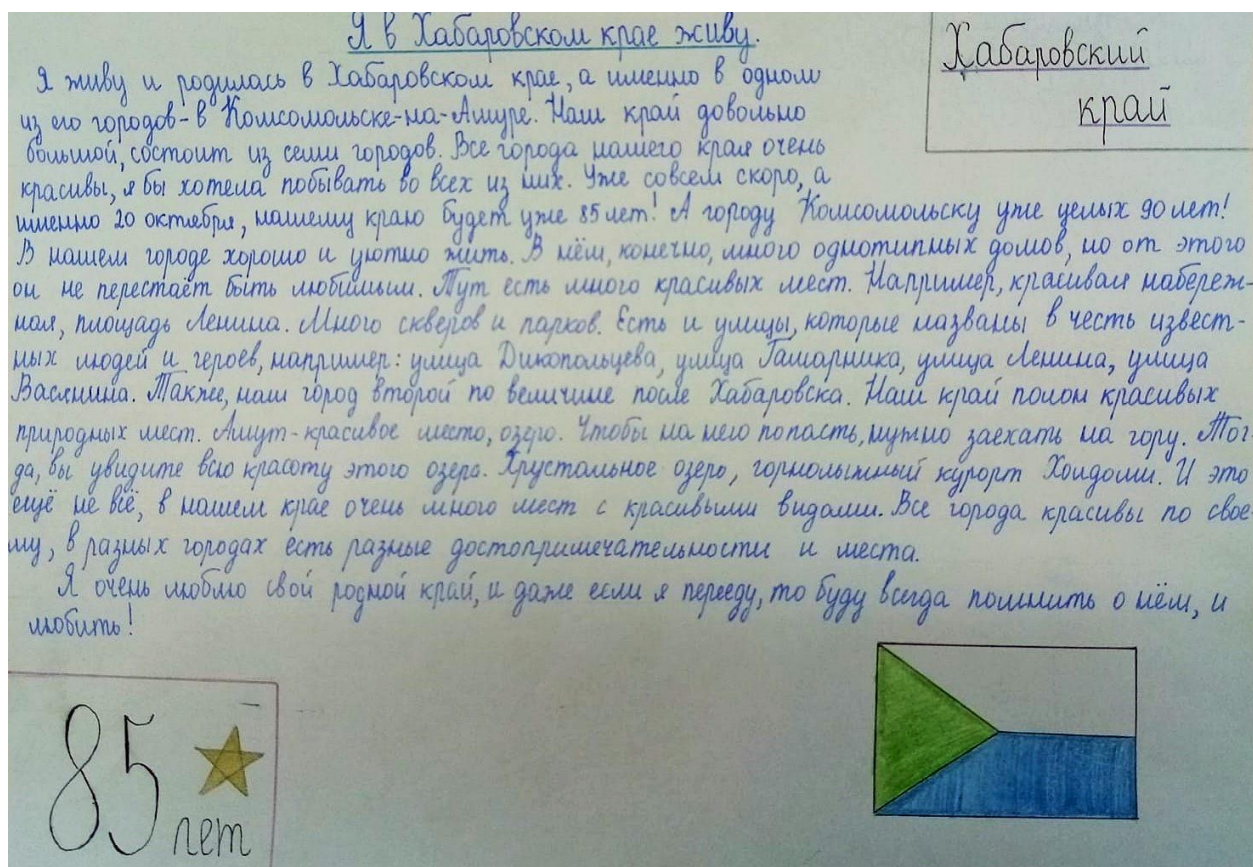 Я в Хабаровском крае живу.
Хабаровский
край
Я живу и родилась в Хабаровском крае, а именно в одном
из его городов - в Комсомольске-на-Амуре. Наш край довольно
большой, состоит из семи городов. Все города нашего края очень
красивы, я бы хотела побывать во всех из них. Уже совсем скоро, а
именно 20 октября, нашему краю будет уже 85 лет! А городу Комсомольску уже целых 90 лет!
В нашем городе хорошо и уютно жить. В нём, конечно, много однотипных домов, но от этого
он не перестаёт быть любимым. Тут есть много красивых мест. Например, красивая набереж-
ная, площадь Ленина. Много скверов и парков. Есть и улицы, которые названы в честь извест-
ных людей и героев, например: улица Дикопольцева, улица Гамарника, улица Ленина, улица
Васянина. Также, наш город второй по величине после Хабаровска. Наш край полон красивых
природных мест. Амут - красивое место, озеро. Чтобы на него попасть, нужно заехать на гору. Тог-
да, вы увидите всю красоту этого озера. Хрустальное озеро, горнолыжный курорт Холдоми. И это
ещё не всё, в нашем крае очень много мест с красивыми видами. Все города красивы по свое-
му, в разных городах есть разные достопримечательности и места.
Я очень люблю свой родной край, и даже если я перееду, то буду всегда помнить о нём, и
любить!
85
лет